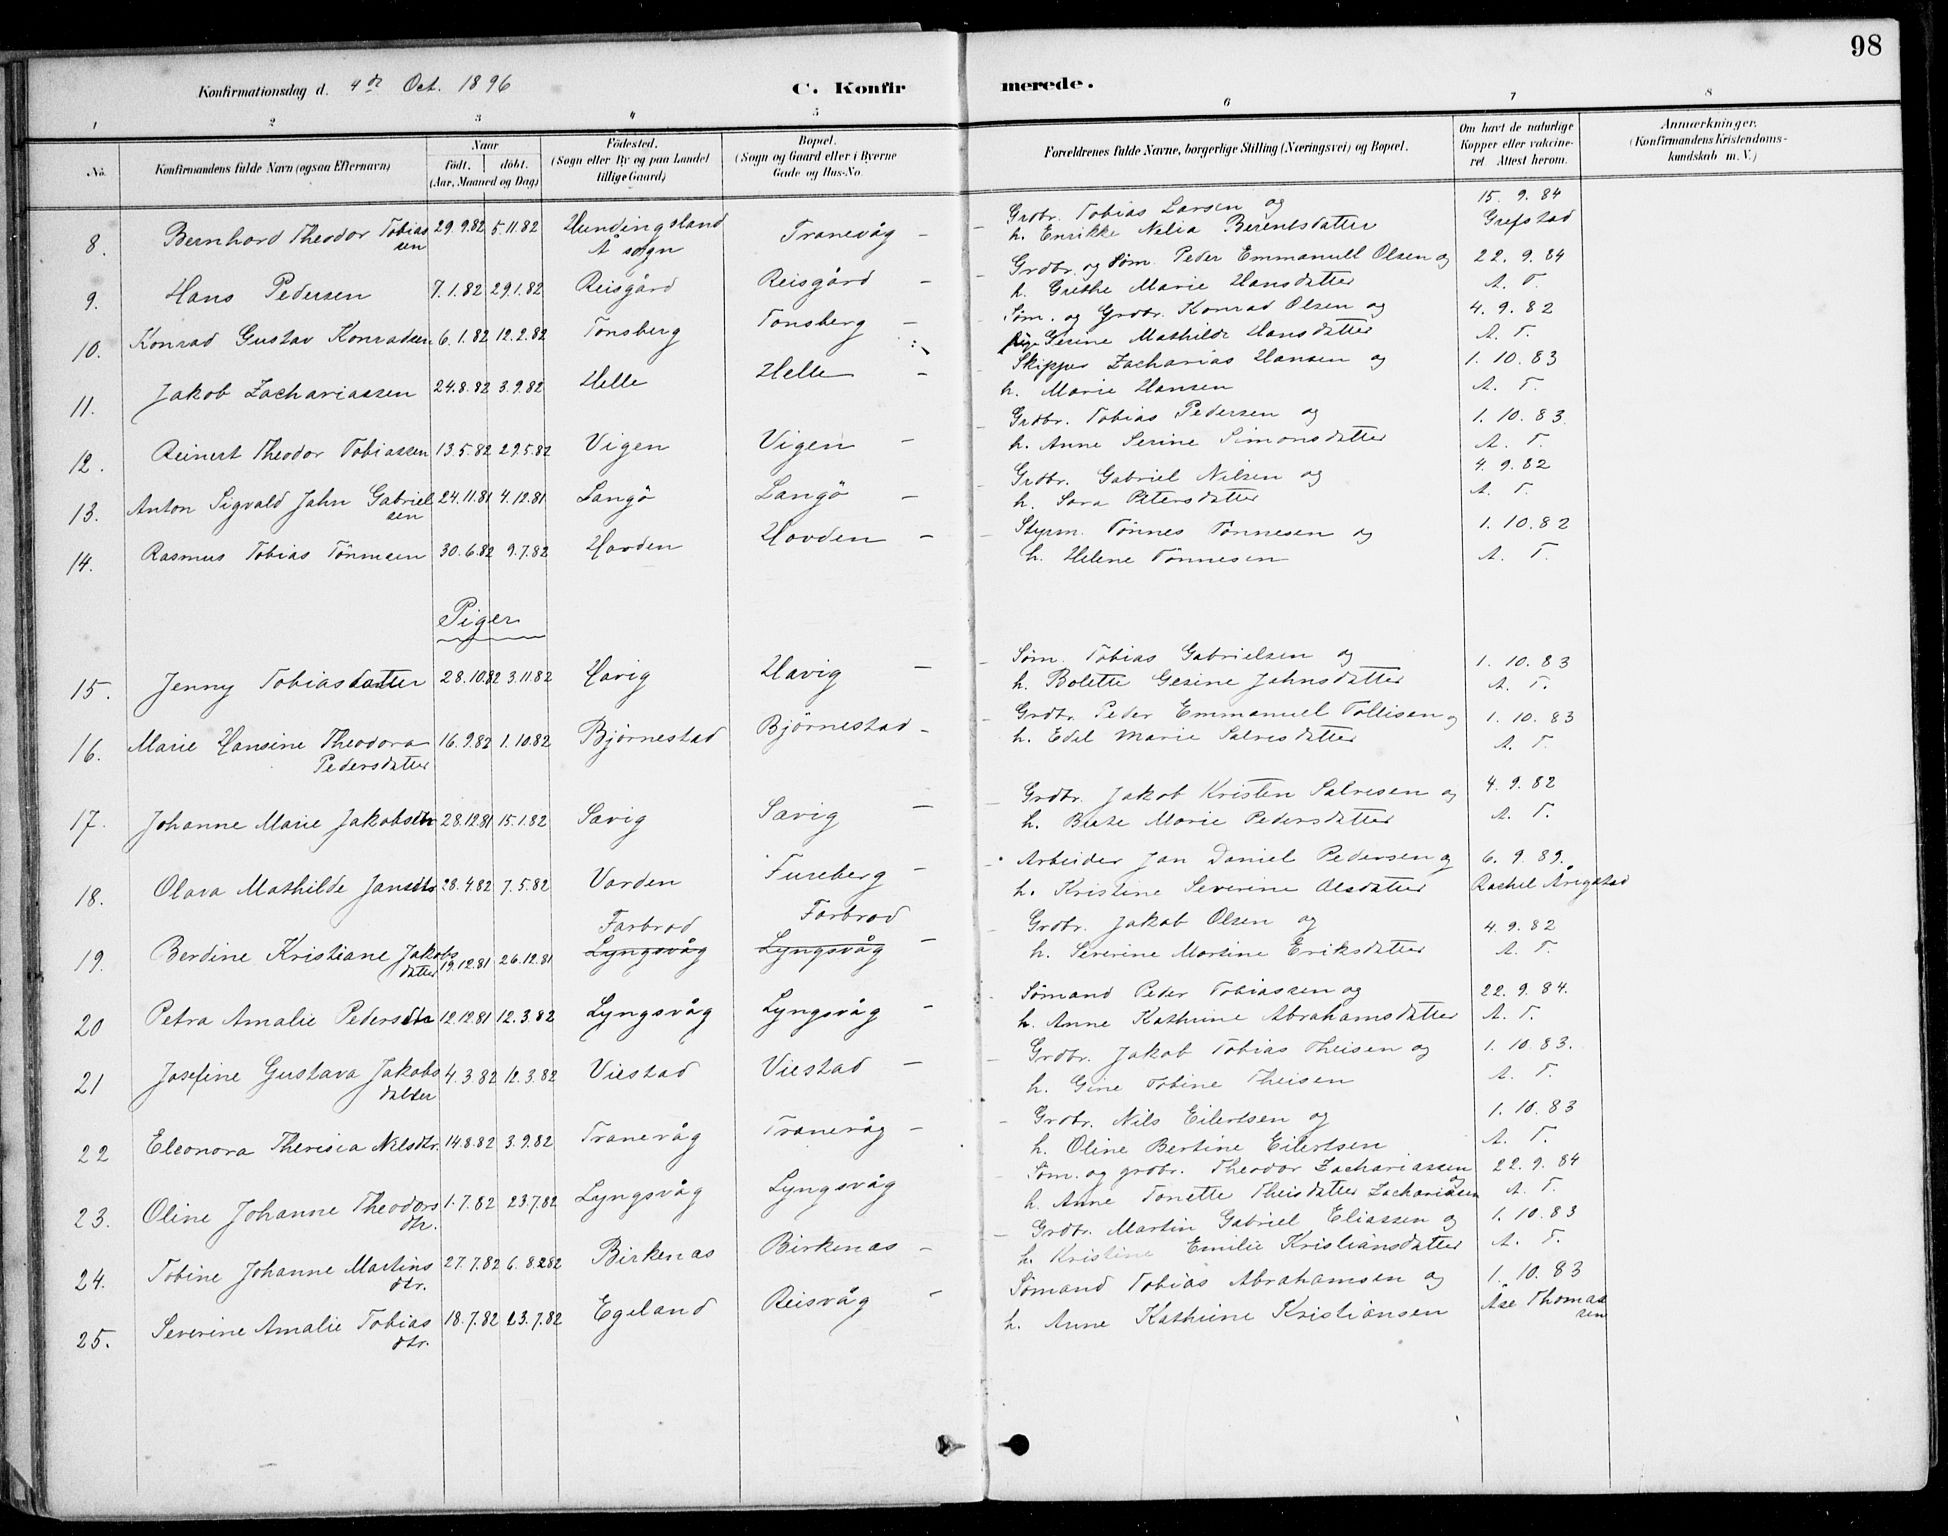 98
Konfirmationsdag d. 4de Oct. 1896
C. Konfirmerede.
1 2 3 4 5 6 7 8
No.
Konfirmandens fulde Navn (ogsaa Efternavn)
Naar
født. døbt.
(Aar, Maaned og Dag)
Fødested.
(Sogn eller By og paa Landet
tillige Gaard)
Bopæl.
(Sogn og Gaard eller i Byerne
Gade og Hus-No.
Forældrenes fulde Navne, borgerlige Stilling (Næringsvei) og Bopæl.
Om havt de naturlige
Kopper eller vaccine-
ret Attest herom.
Anmærkninger.
(Konfirmandens Kristendoms-
kundskab m. V.)
8. Bernhard Theodor Tobias 29.9.82 5.11.82 Hundingsland Tranevåg – Grdbr. Tobias Larsen og 15. 9. 84
sen Å sogn h. Enrikke Nelia Berentsdatter Grefstad
9. Hans Pedersen 7.1.82 29.1.82 Reisgård Reisgård – Grdbr. og Søm. Peder Emmanuel Olsen og 22. 9. 84
h. Grethe Marie Hansdatter A. T.
10. Konrad Gustav Konradsen 6.1.82 12.2.82 Tonsberg Tonsberg – Søm. og Grdbr. Konrad Olsen og 4. 9. 82
Gerine Mathilde Hansdatter A. T.
11. Jakob Zachariassen 24.8.82 3.9.82 Helle Helle – Skipper Zacharias Hansen og 1. 10. 83
h. Marie Hansen A. T.
12. Reinert Theodor Tobiassen 13.5.82 29.5.82 Vigen Vigen – Grdbr. Tobias Pedersen og 1. 10. 83
h. Anne Serine Simonsdatter A. T.
13. Anton Sigvald Jahn Gabriel 24.11.81 4.12.81 Langö Langö – Grdbr. Gabriel Nilsen og 4. 9. 82
sen h. Sara Petersdatter A. T.
14. Rasmus Tobias Tönnesen 30.6.82 9.7.82 Hovden Hovden – Styrm. Tönnes Tönnesen og 1. 10. 82
h. Helene Tönnesen A. T.
Piger
15. Jenny Tobiasdatter 28.10.82 3.11.82 Havig Havig – Søm. Tobias Gabrielsen og 1. 10. 83
h. Bolette Gesine Jahnsdatter A. T.
16. Marie Hansine Theodora 16.9.82 1.10.82 Bjørnestad Bjørnestad – Grdbr. Peder Emmanuel Tollisen og 1. 10. 83
Pedersdatter h. Edel Marie Salvesdatter A. T.
17. Johanne Marie Jakobsdtr 28.12.81 15.1.82 Sævig Sævig – Grdbr. Jakob Kristen Salvesen og 4. 9. 82
h. Beate Marie Pedersdatter A. T.
18. Olava Mathilde Jansdtr 28.4.82 7.5.82 Varden Fureberg – Arbeider Jan Daniel Pedersen og 6. 9. 89.
h. Kristine Severine Olsdatter Rachel Årigstad
19. Berdine Kristiane Jakobs 19.12.81 26.12.81 Farbrod Farbrod – Grdbr. Jakob Olsen og 4. 9. 82
datter Lyngsvåg Lyngsvåg h. Severine Martine Eriksdatter A. T.
20 Petra Amalie Pedersdtr 12.12.81 12.3.82 Lyngsvåg Lyngsvåg – Sømand Peder Tobiassen og 22. 9. 84.
h. Anne Kathrine Abrahamsdatter A. T.
21 Josefine Gustava Jakobs 4.3.82 12.3.82 Viestad Viestad – Grdbr. Jakob Tobias Theisen og 1. 10. 83.
datter h. Gine Tobine Theisen A. T.
22 Eleonora Theresia Nilsdtr. 14.8.82 3.9.82 Tranevåg Tranevåg – Grdbr. Nils Eilertsen og 1. 10. 83
h. Oline Bertine Eilertsen A. T.
23. Oline Johanne Theodors 1.7.82 23.7.82 Lyngsvåg Lyngsvåg Søm. og grdbr. Theodor Zachariassen og 22. 9. 84
dtr. h. Anne Tonette Theisdatter Zachariasen A. T.
24. Tobine Johanne Martins 27.7.82 6.8.82 Birkenas Birkenas – Grdbr. Martin Gabriel Eliassen og 1. 10. 83
dtr. h. Kristine Emilie Kristiansdatter A. T.
25. Severine Amalie Tobias 18.7.82 23.7.82 Egeland Reisvåg – Sømand Tobias Abrahamsen og 1. 10. 83
dtr. h. Anne Kathrine Kristiansen Ase Thomas
sen